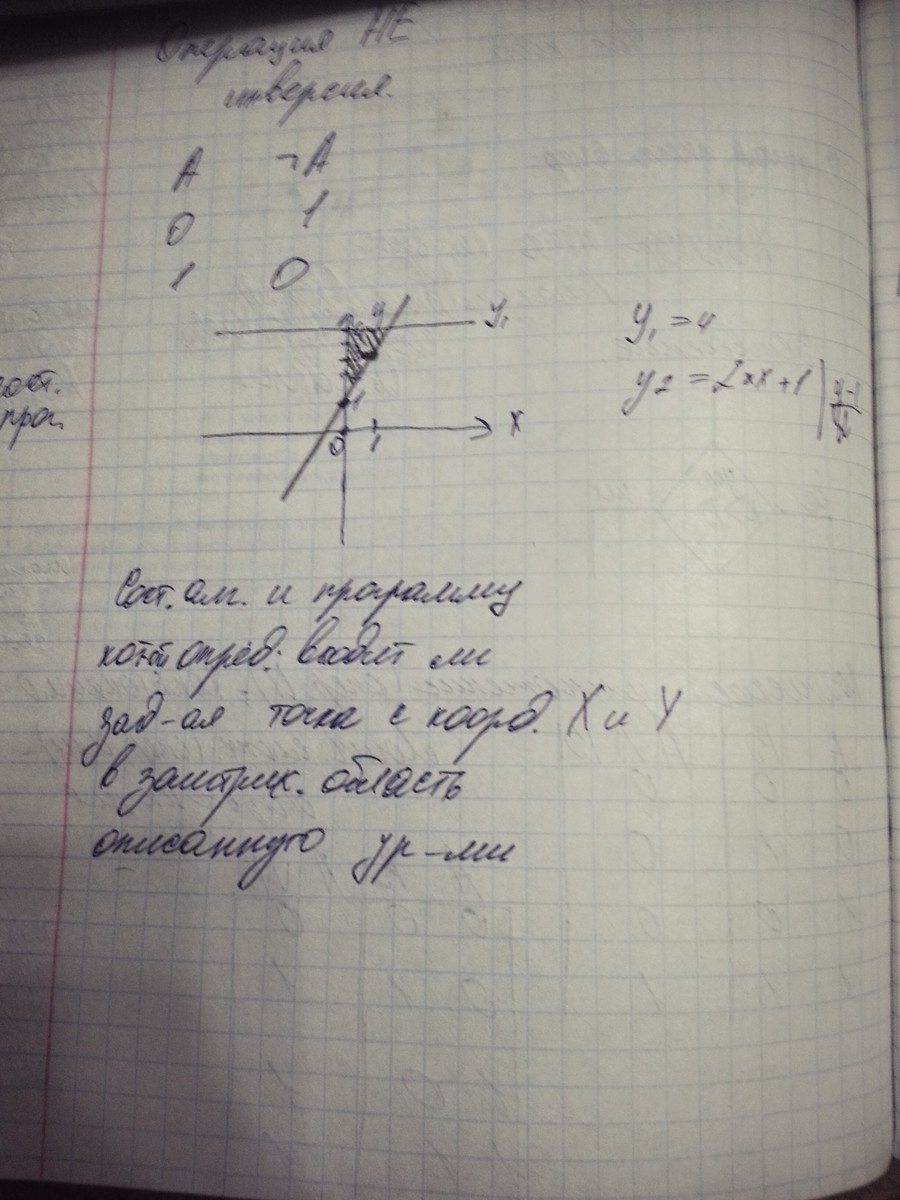 Операция НЕ
инверсия.
A ¬A
0 1
1 0
y₁
x
0 1
y₁ = 4
y₂ = 2*x+1
Сост. алг. и программу
котой опред. входит ли
зад-ая точка с коорд. X и Y
в заштрих. область
описанную ур-ми